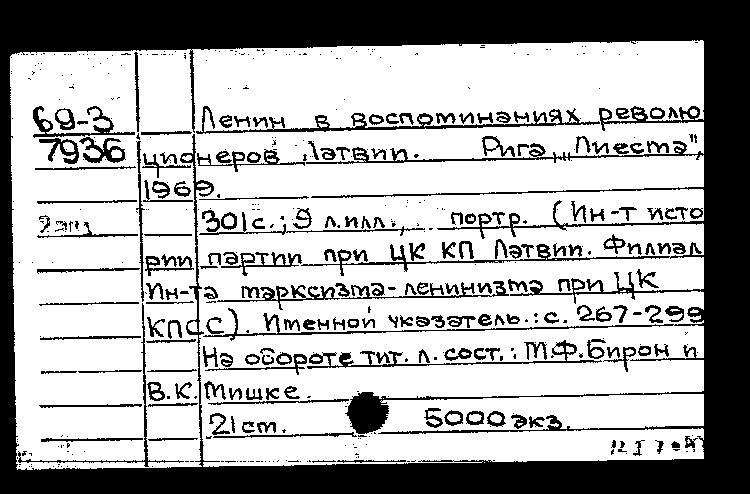 69-3 Ленин в воспоминаниях револю
7936 ционеров Латвии. Рига, „Лиесма",
1969.
301с.; 9 л.илл., портр. (Ин-т исто
рии партии при ЦК КП Латвии. Филиал
Ин-та марксизма-ленинизма при ЦК
КПСС). Именной указатель.: с. 267-299
На обороте тит. л. сост.: М.Ф.Бирон и
В.К. Мишке.
21 см. 5000 экз.